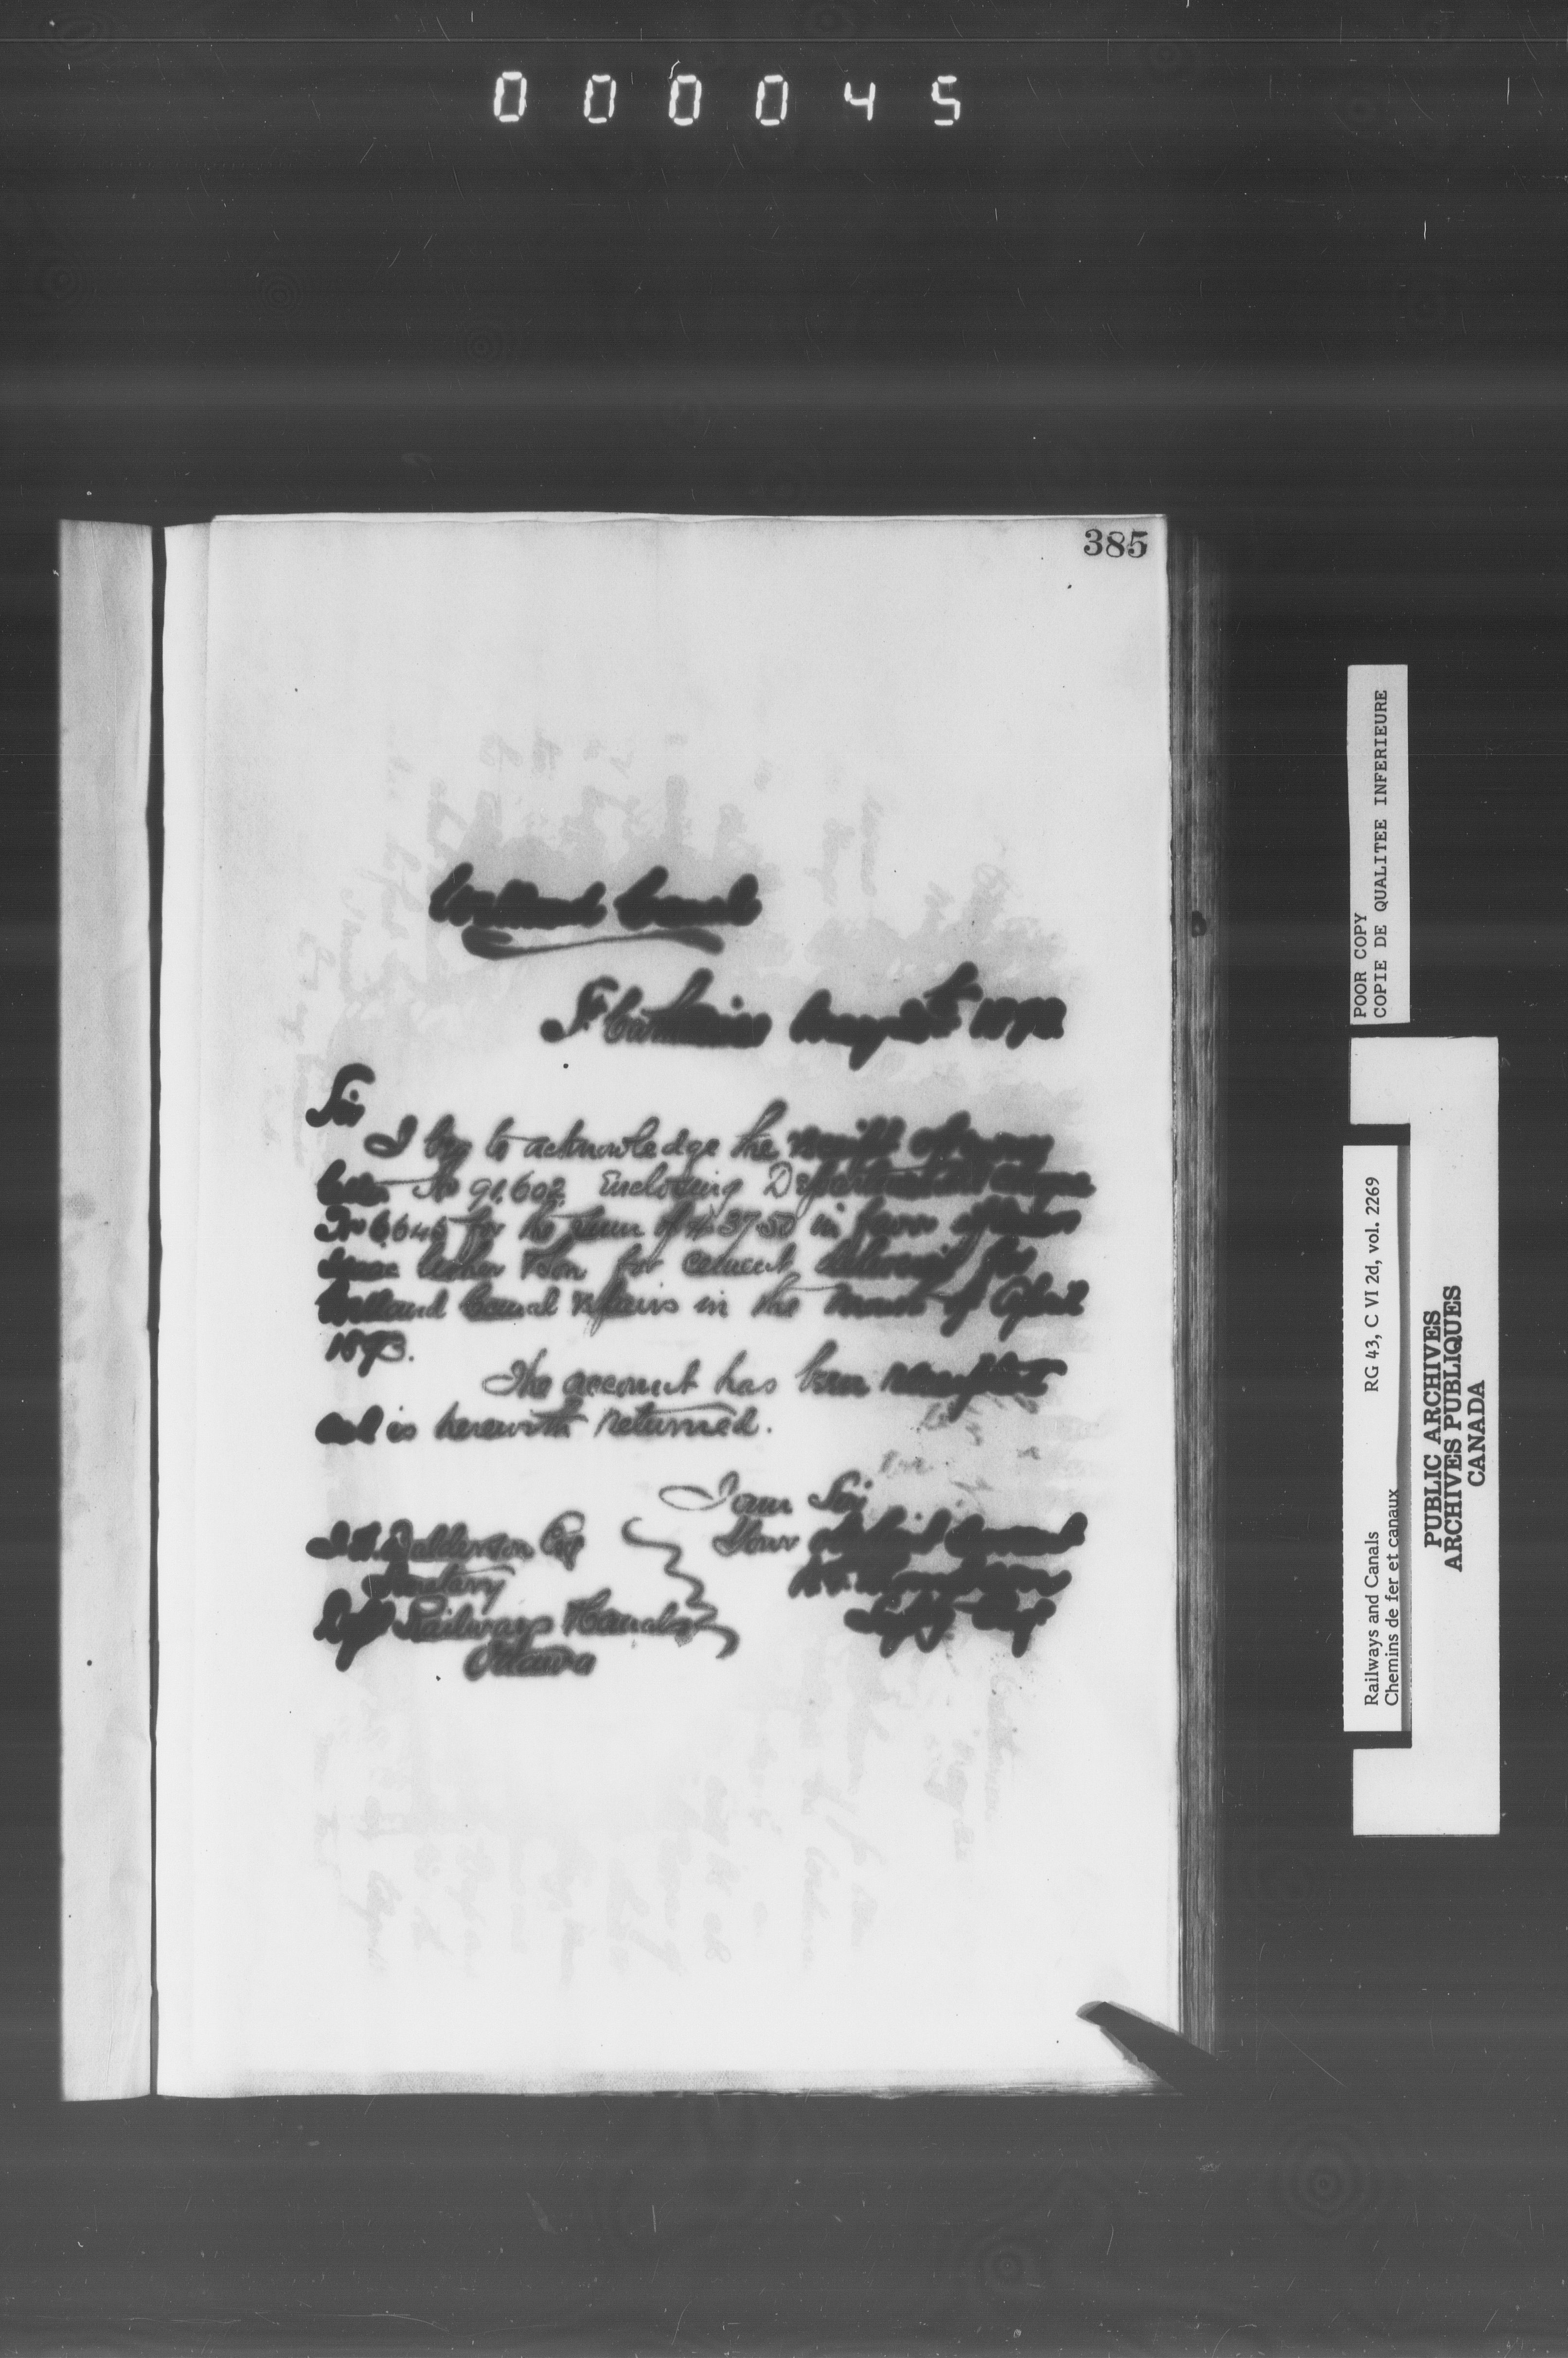 000045
385
Welland Canal
St Catharines 1893
Sir
I beg to acknowledge the receipt of your
letter No 91.602 Enclosing Departmental cheque
No 6645 for the sum of $37.50 in favor of
Usher & Son for cement delivered for
Welland Canal Repairs in the Month of April
1893.
The account has been receipted
and is herewith returned.
I am Sir
Your obedient servant
Supt
Balderson Esq
Secretary
Dept Railways & Canals
Ottawa
POOR COPY
COPIE DE QUALITEE INFERIEURE
Railways and Canals RG 43, C VI 2d, vol. 2269
Chemins de fer et canaux
PUBLIC ARCHIVES
ARCHIVES PUBLIQUES
CANADA